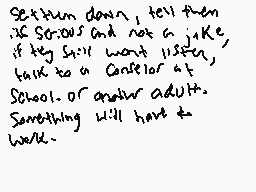 set them down, tell them
its serious and not a joke,
if they still wont listen,
talk to a conselor at
school. or another adult.
something will have to
work.